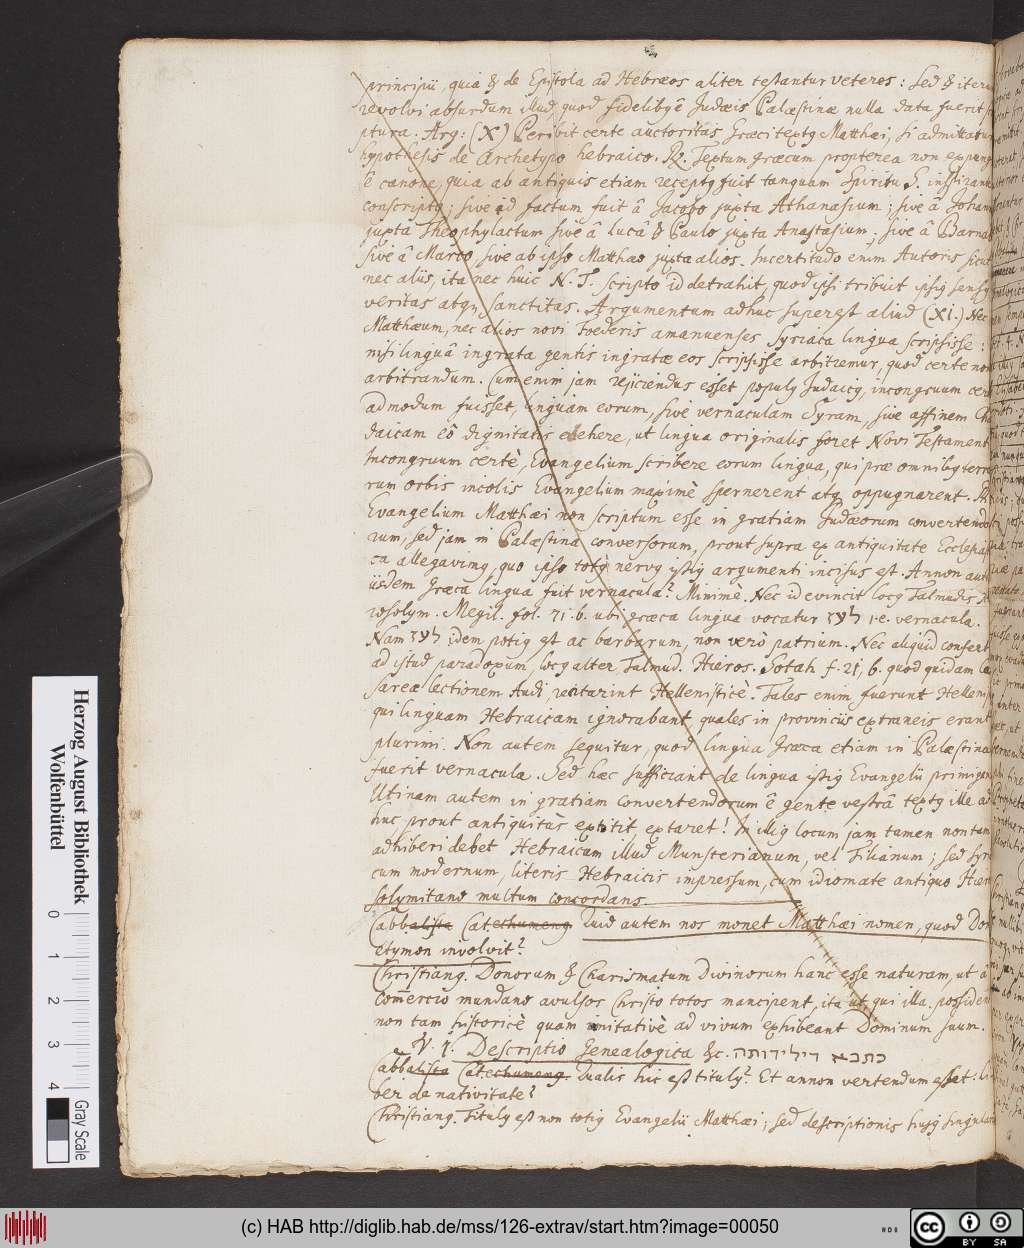 principii, quia & de Epistola ad Hebræos aliter testantur veteres: Sed & iteru
revolvi absurdum illud quod fidelibq̃ Judæis Palæstinæ nulla data fuerit
ptura. Arg: (X) Peribit certe auctoritas Græci textq Matthæi, si admittatur
hypothesis de Archetypo hebraico. ℞. Textum græcum propterea non expung
ê canone, quia ab antiquis etiam receptq fuit tanquam Spiritu S. inspirante
conscriptq; sive id factum fuit â Jacobo juxta Athanasium; sive â Johann
juxta Theophylactum sive â luca & Paulo juxta Anastasium; sive â Barna
sive â Marco, sive ab ipso Matthæo juxta alios. Incertitudo enim Autoris sicut
nec aliis, ita nec huic N. T. scripto id detrahit, quod ipsi tribuit ipsiq sensq
veritas atq, sanctitas. Argumentum adhuc superest aliud (XI.) Nec
Matthæum, nec alios novi foederis amanuenses Syriaca lingua scripsisse:
nisi linguâ ingrata gentis ingratæ eos scripsisse arbitremur, quod certe non
arbitrandum. Cum enim jam rejiciendus esset populq Judaicq, incongruum cer
admodum fuisset, linguam eorum, sive vernaculam Syram, sive affinem C
daicam eô dignitatis evehere, ut lingua originalis foret Novi Testament
Incongruum certè, Evangelium scribere eorum lingua, qui præ omnibq terra
rum orbis incolis Evangelium maximè spernerent atq oppugnarent.
Evangelium Matthæi non scriptum esse in gratiam Judæorum convertendo
rum, sed jam in Palæstina conversorum, prout supra ex antiquitate Ecclesia
ca allegavimq, quo ipso totq nervq istiq argumenti incisus est. Annon aut
iisdem Græca lingua fuit vernacula? Minime. Nec id evincit locq Talmudis
rosolym. Megil. fol. 71. b. ubi græca lingua vocatur לעז i.e. vernacula.
Nam לעז idem potiq est ac barbarum, non verò patrium. Nec aliquid confert
ad istud paradoxum, locq alter, Talmud. Hieros. Sotah f. 21, b. quod quidam Cæ
sareæ lectionem Audi recitarint Hellenisticè. Tales enim fuerunt Hellenis
qui linguam Hebraicam ignorabant, quales in provinciis extraneis erant
plurimi. Non autem sequitur, quod lingua Græca etiam in Palæstina
fuerit vernacula. Sed hæc sufficiant de lingua istiq Evangelii primigen
Utinam autem in gratiam convertendorum ê gente vestrâ textq ille ad
huc prout antiquitùs extitit, extaret! In illiq locum jam tamen non tam
adhiberi debet Hebraicum illud Munsterianum, vel Tilianum; sed Syri
cum modernum, literis Hebraicis impressum, cum idiomate antiquo Hiero
solymitano multum concordans.
Cabbalista Catechumenq Quid autem nos monet Matthæi nomen, quod Don
etymon involvit?
Christianq. Donorum & Charismatum Divinorum hanc esse naturam, ut a
Comercio mundano avulsos Christo totos mancipent, ita ut qui illa possident
non tam historicè quam imitativè ad vivum exhibeant Dominum suum.
V. 1. Descriptio Genealogica &c. כתבא דילידותה
Cabbalista Catechumenq. Qualis hic est titulq? Et annon vertendum esset: Li
ber de nativitate?
Christianq. Titulq est non totiq Evangelii Matthæi; sed descriptionis hujq singular
Herzog August Bibliothek
Wolfenbüttel
0 1 2 3 4
Gray Scale
(c) HAB http://diglib.hab.de/mss/126-extrav/start.htm?image=00050
cc BY SA